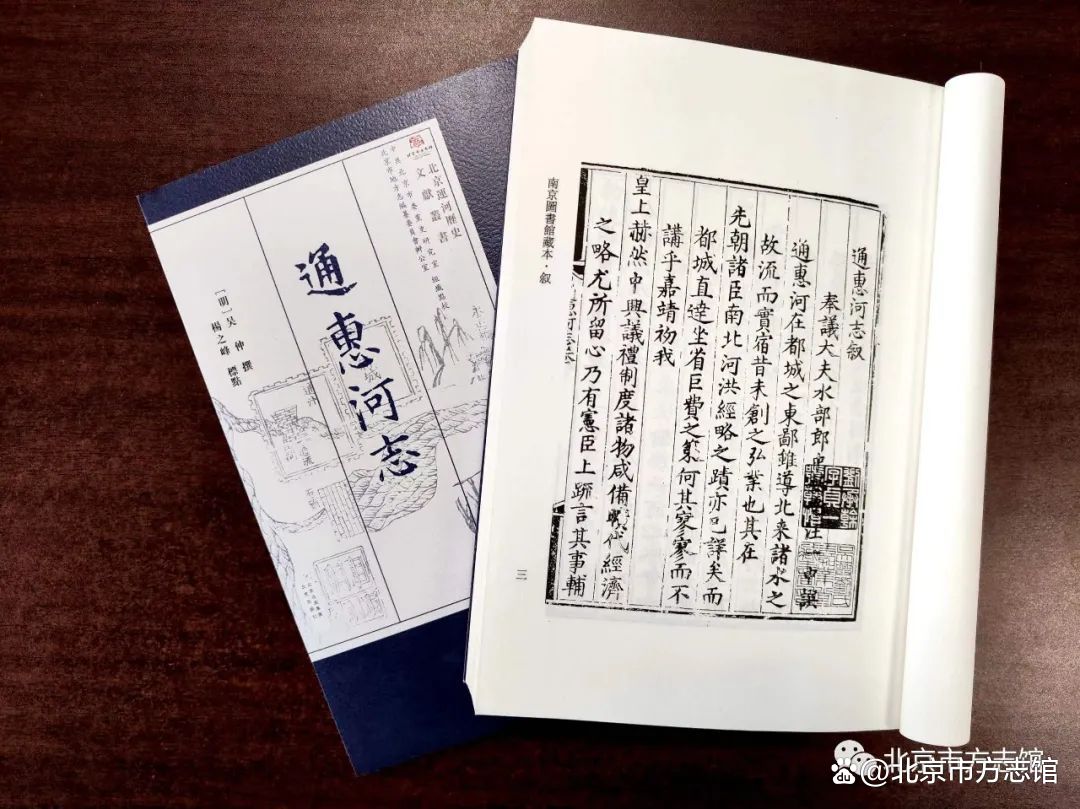 北京運河歷史
文獻叢書
中共北京市委黨史研究室
北京市地方志編纂委員會辦公室
組織點校
通惠河志
〔明〕吳仲 撰
楊之峰 標點
南京圖書館藏本·叙
三
通惠河志叙
奉議大夫水部郎
通惠河在都城之東鄙雖導北来諸水之
故流而實宿昔未創之弘業也其在
先朝諸臣南北河洪經略之蹟亦已詳矣而
都城直達坐省巨費之策何其寥寥而不
講乎嘉靖初我
皇上赫然中興議禮制度諸物咸備代經濟
之略尤所留心乃有憲臣上疏言其事輔
北京市方志馆
@北京市方志馆